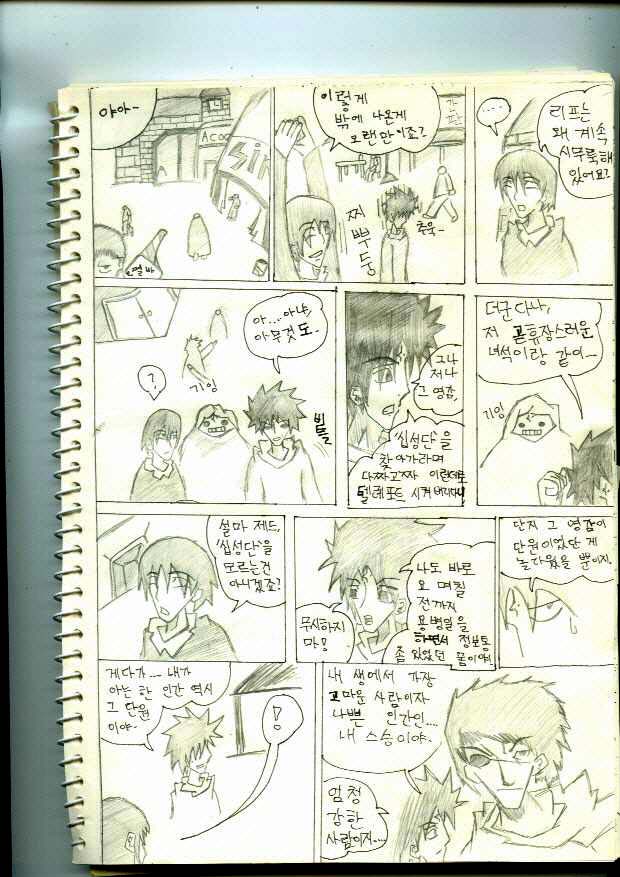 야아~
ACOO
Sin
이렇게
밖에 나온게
오랜만이죠?
간판
찌
뿌
둥
추욱~
....
리프는
왜 계속
시무룩해
있어요?
아...아냐,
아무것도.
?
기잉
비틀
그나
저나
그 영감,
'십성단'을
찾아가라며
다짜고짜 이런데로
텔레포트 시켜버리다니
더군다나,
저 골휴장스러운
녀석이랑 같이...
기잉
설마 제드,
'십성단'을
모르는건
아니겠죠?
무시하지
마!
나도 바로
요 며칠
전까지
용병일을
하면서 정보통
좀 있었던 몸이야!
단지 그 영감이
단원이었단 게
놀라웠을 뿐이지.
게다가... 내가
아는 한 인간 역시
그 단원
이야~
!
내 생에서 가장
고마운 사람이자
나쁜 인간인....
내 스승이야.
엄청
강한
사람이지....